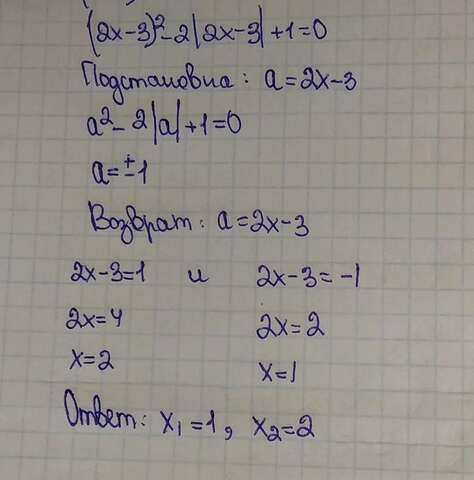 (2x-3)²-2|2x-3|+1=0
Подстановка: a=2x-3
a²-2|a|+1=0
a=±1
Возврат: a=2x-3
2x-3=1 и 2x-3=-1
2x=4 2x=2
x=2 x=1
Ответ: x₁=1, x₂=2